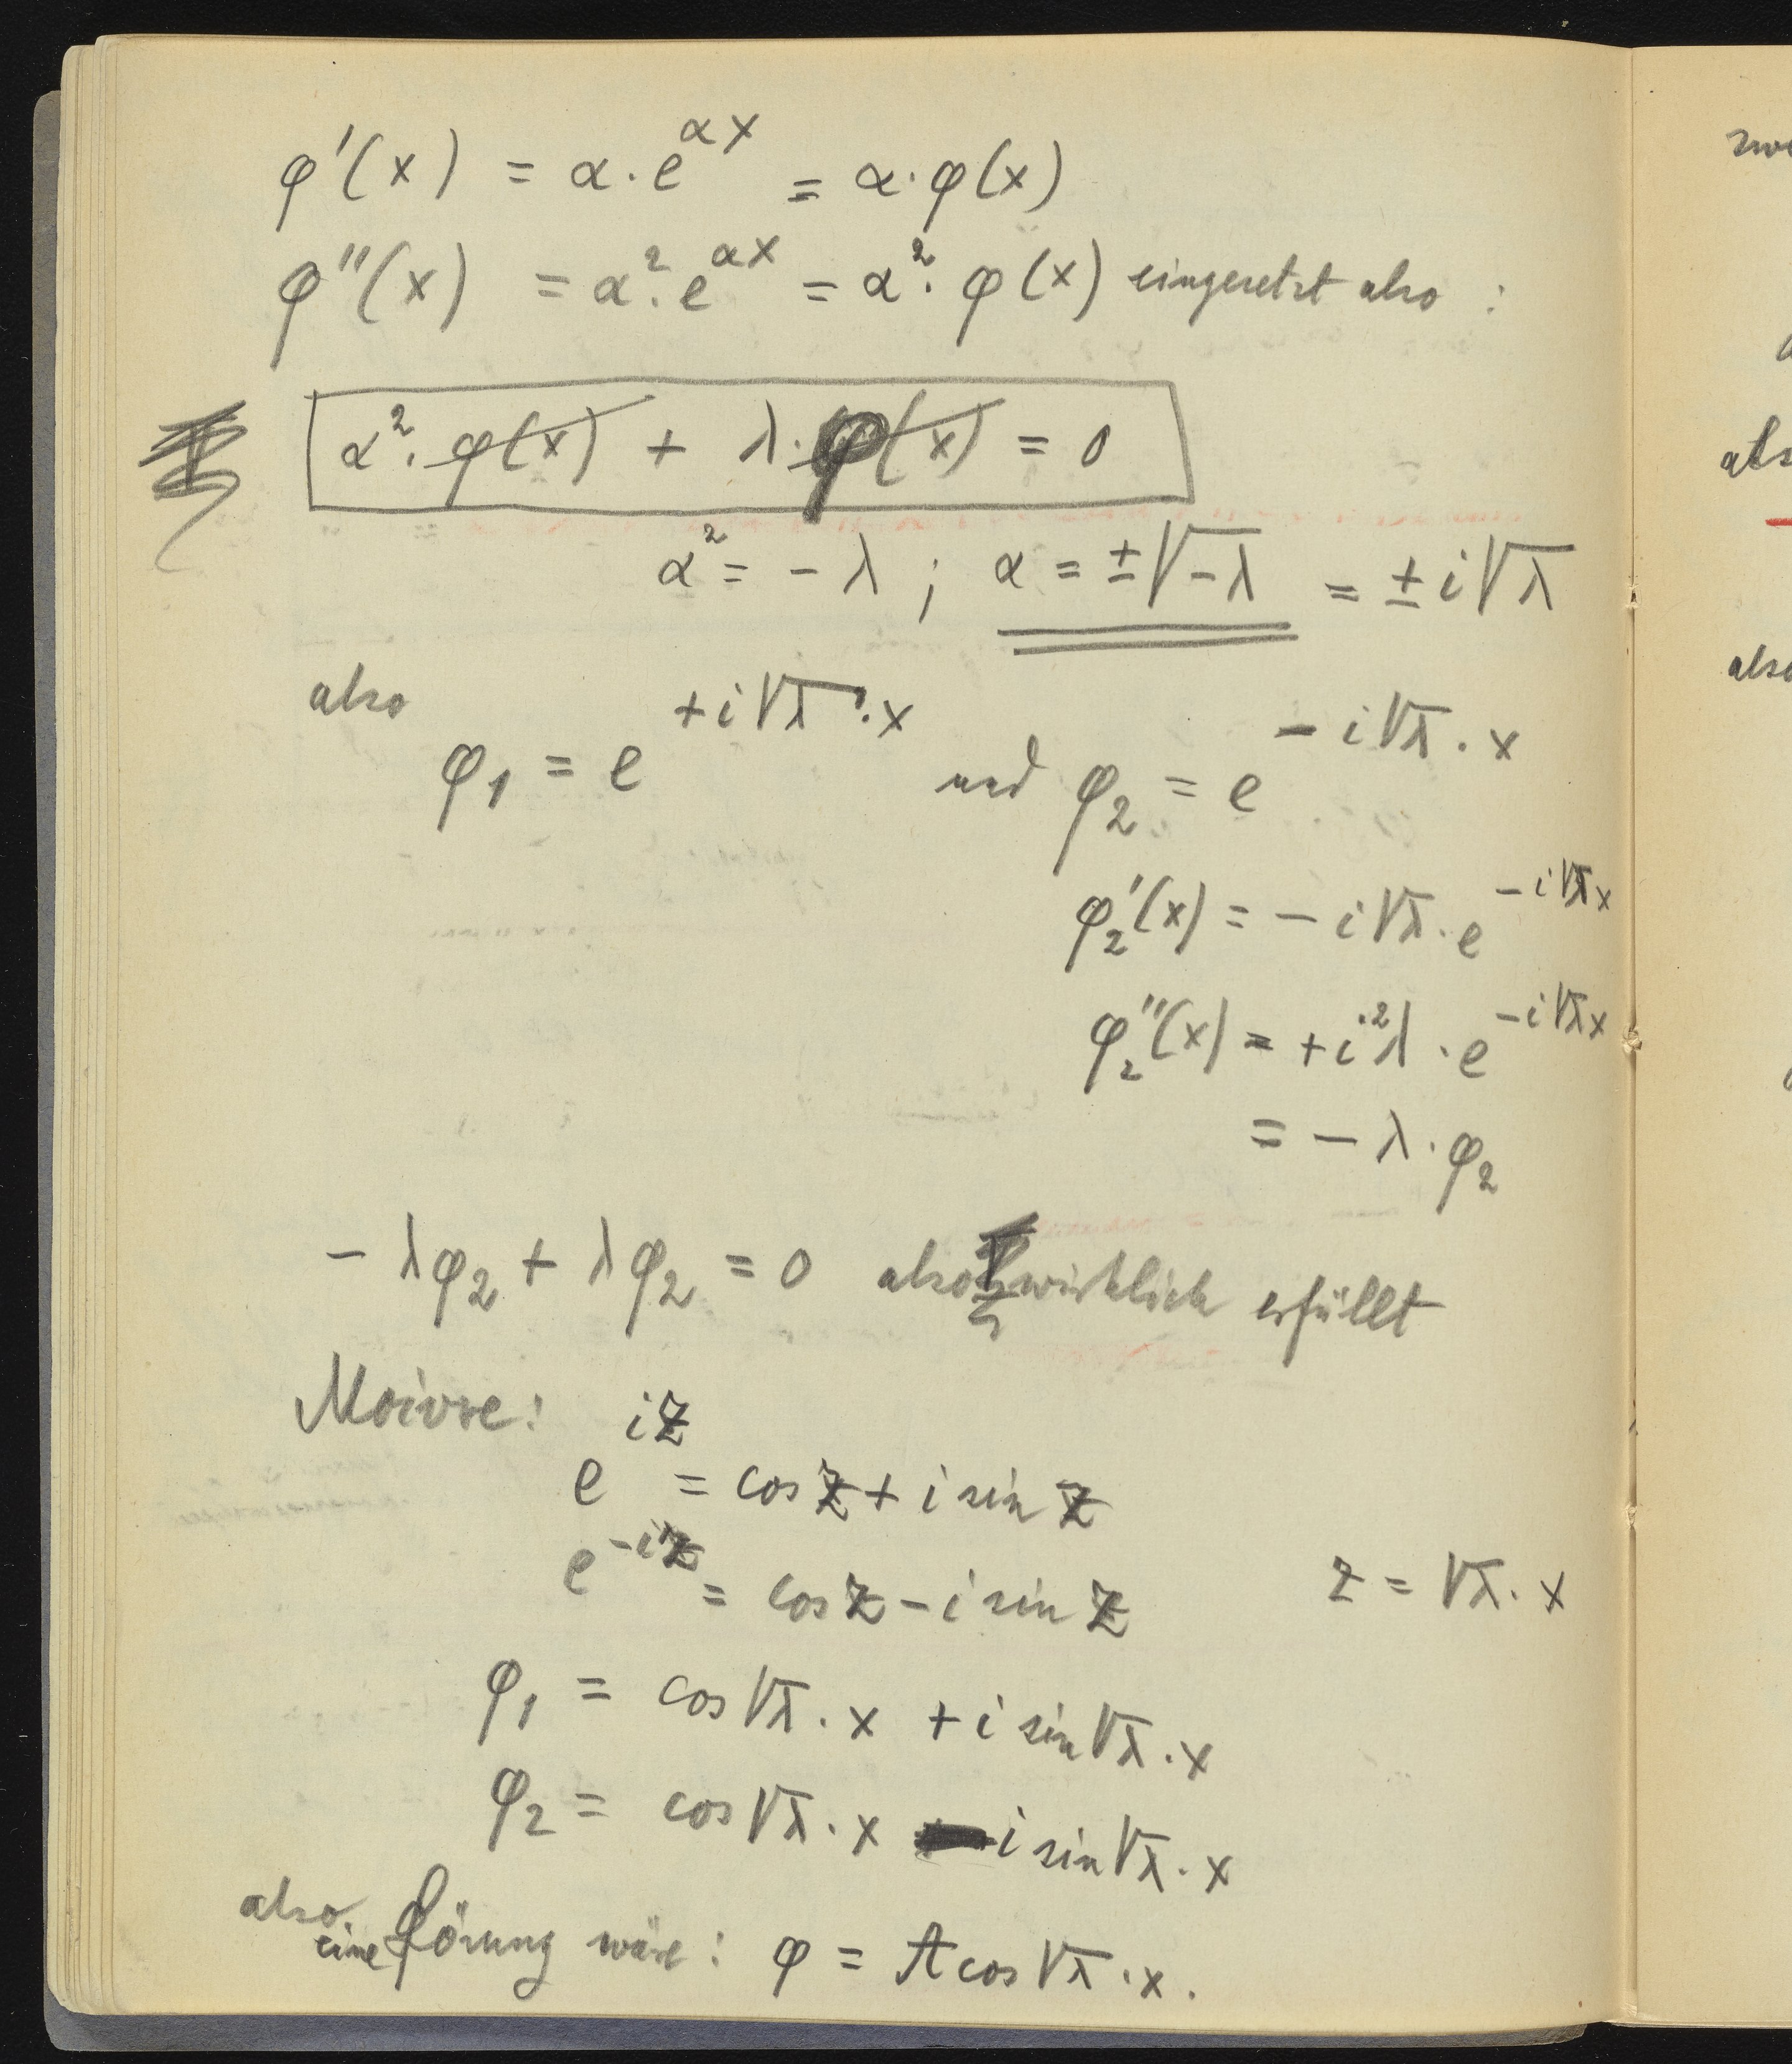 φ'(x) = α · e^{αx} = α · φ(x)
φ''(x) = α² · e^{αx} = α² · φ(x) eingesetzt also :
α² · φ(x) + λ · φ(x) = 0
α² = - λ ; α = ±√-λ = ± i√λ
also
φ₁ = e^{+i√λ · x} und φ₂ = e^{-i√λ · x}
φ₂'(x) = - i√λ · e^{-i√λx}
φ₂''(x) = + i²λ · e^{-i√λx}
= - λ · φ₂
- λφ₂ + λφ₂ = 0 also wirklich erfüllt
Moivre:
e^{iz} = cos z + i sin z
e^{-iz} = cos z - i sin z
z = √λ · x
φ₁ = cos √λ · x + i sin √λ · x
φ₂ = cos √λ · x - i sin √λ · x
also eine Lösung wäre: φ = A cos √λ · x.
zwe
als
also